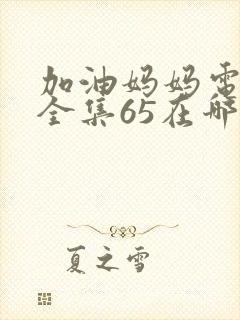 加油妈妈电
全集65在哪
夏之雪